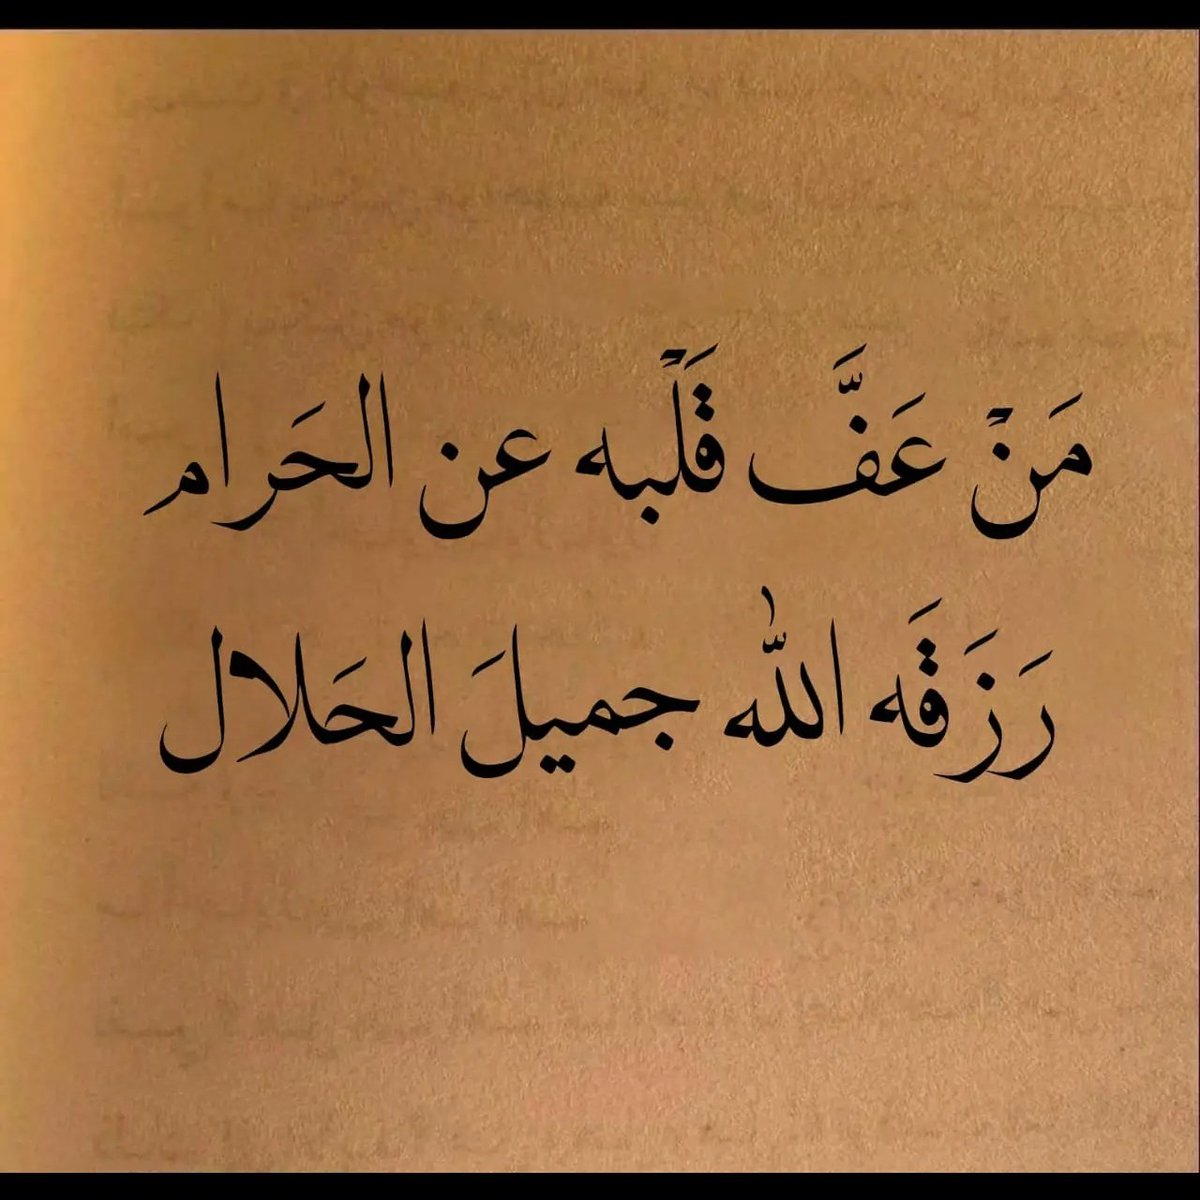 مَنْ عَفَّ قَلْبه عن الحَرام
رَزَقَه اللّٰه جميلَ الحَلال